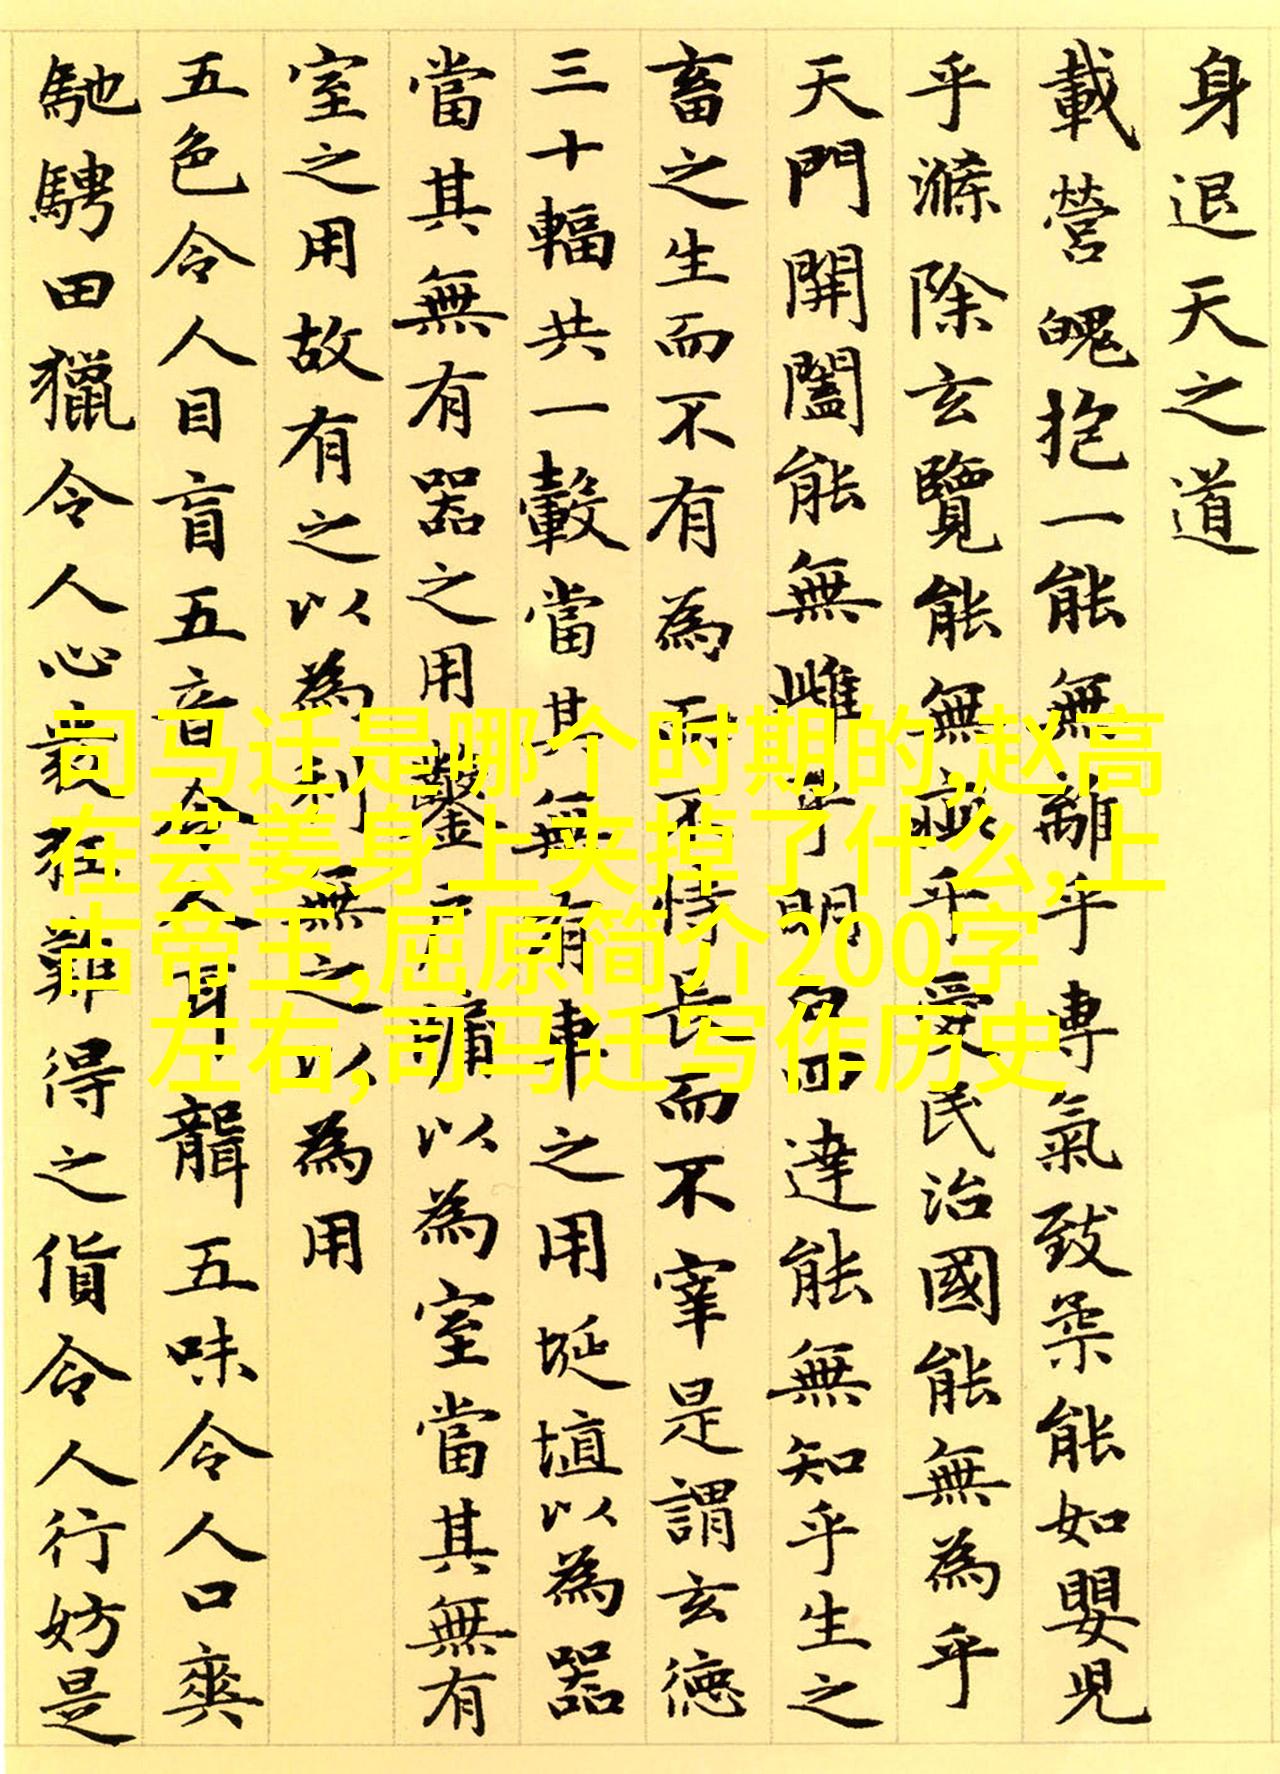 身退天之道
載營魄抱一能無離乎專氣致柔能如嬰兒
乎滌除玄覽能無疵乎愛民治國能無為乎
天門開闔能無雌乎明白四達能無知乎生之
畜之生而不有為而不恃長而不宰是謂玄德
三十輻共一轂當其無有車之用埏埴以為器
當其無有器之用鑿戶牖以為室當其無有
室之用故有之以為利無之以為用
五色令人目盲五音令人耳聾五味令人口爽
馳騁田獵令人心發狂難得之貨令人行妨是
司马迁是哪个时期的,赵高
在芸姜身上夹掉了什么,上
古帝王,屈原简介200字
左右,司马迁写作历史